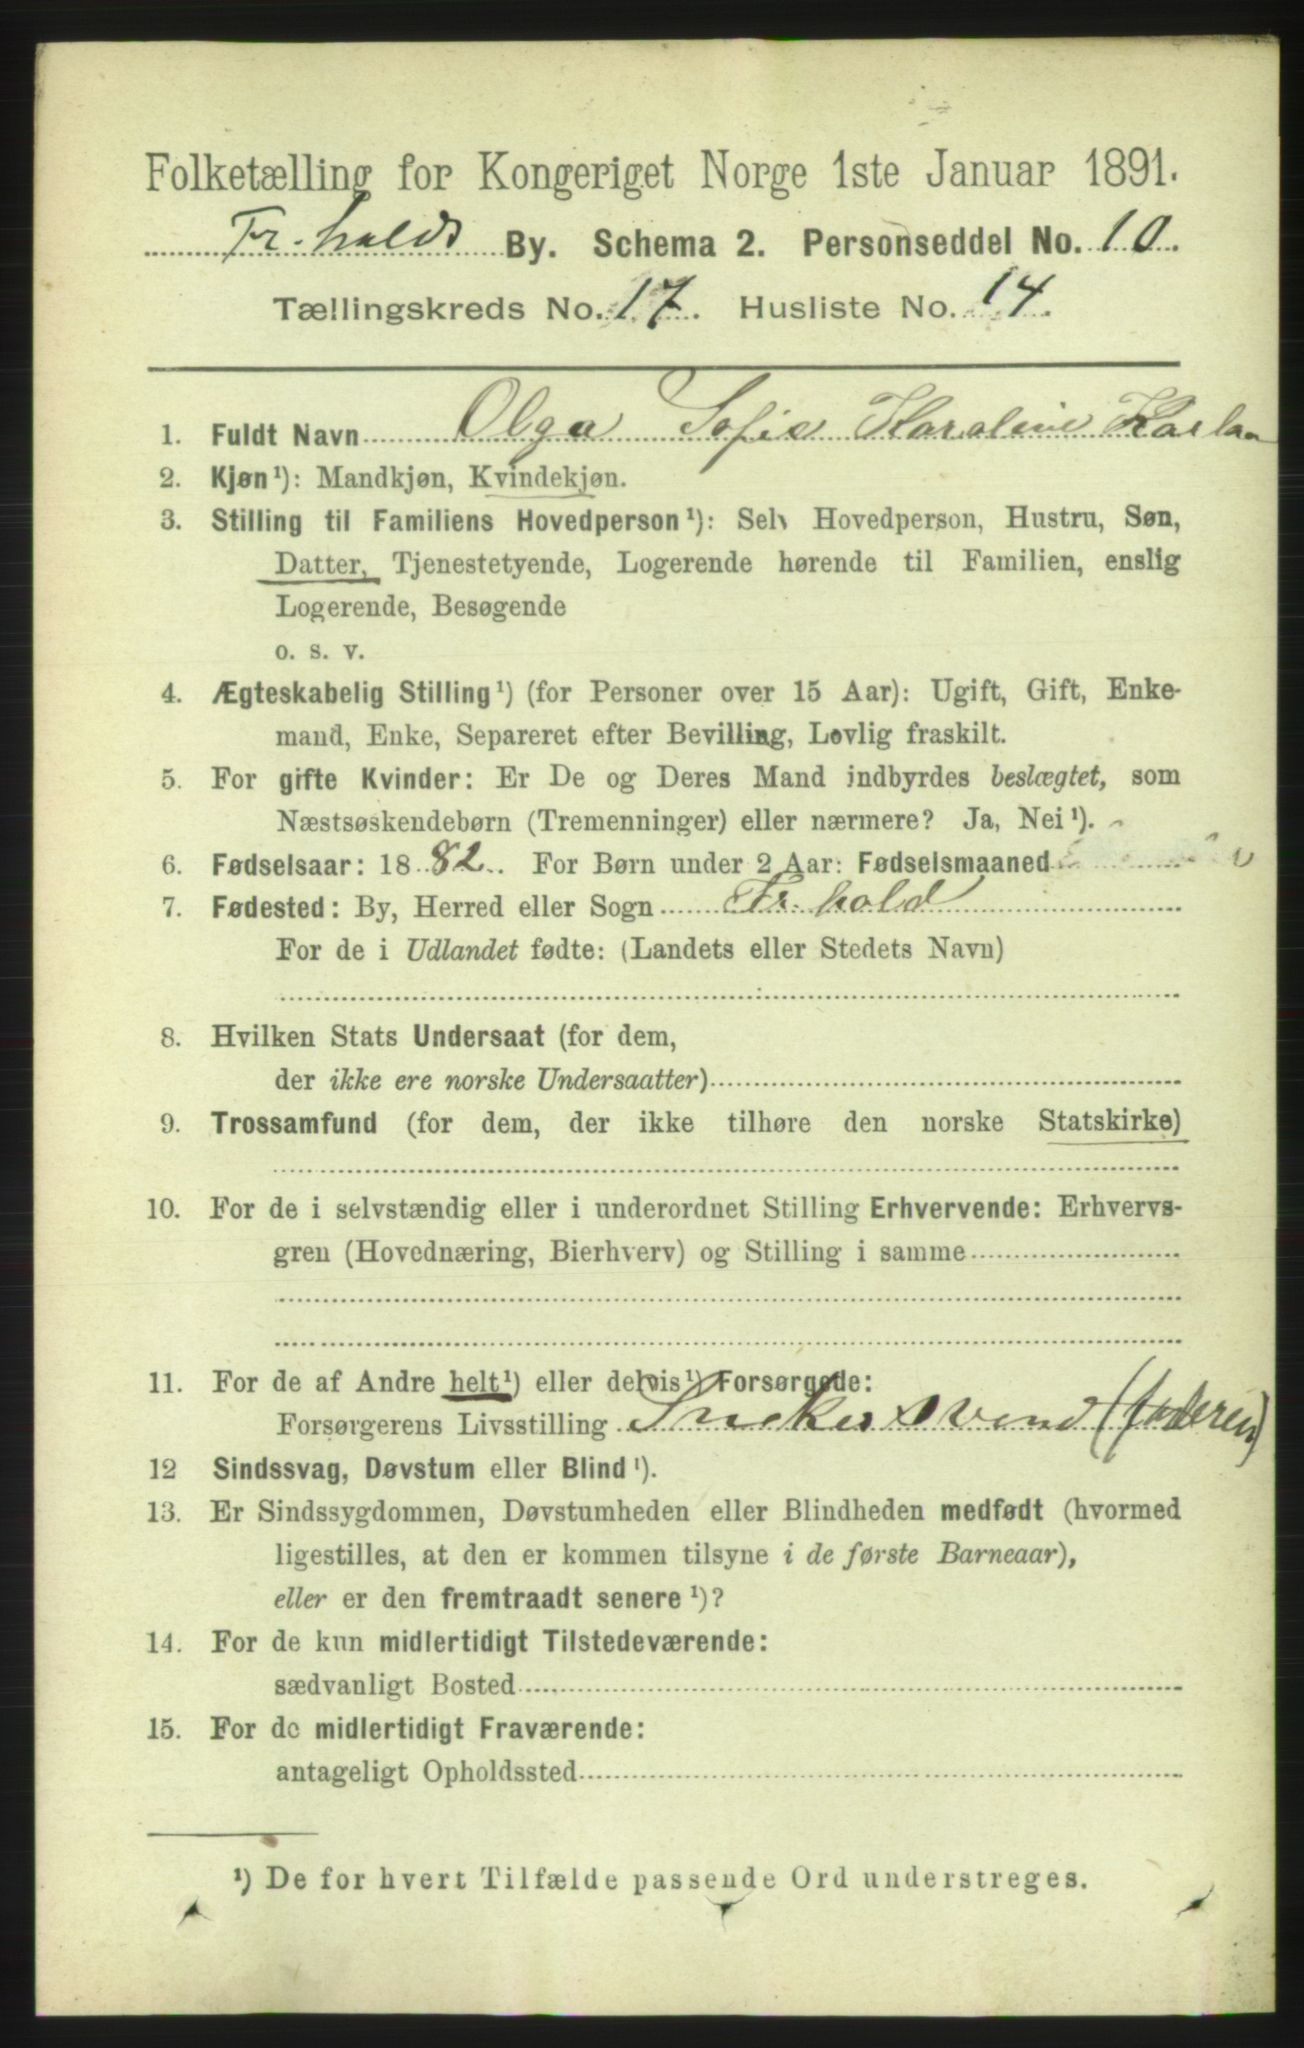 Folketælling for Kongeriget Norge 1ste Januar 1891.
Fr.halds By. Schema 2. Personseddel No. 10.
Tællingskreds No. 17. Husliste No. 14.
1. Fuldt Navn Olga Sofie Karoline
2. Kjøn¹): Mandkjøn, Kvindekjøn.
3. Stilling til Familiens Hovedperson¹): Selv Hovedperson, Hustru, Søn,
Datter, Tjenestetyende, Logerende hørende til Familien, enslig
Logerende, Besøgende
o. s. v.
4. Ægteskabelig Stilling¹) (for Personer over 15 Aar): Ugift, Gift, Enke-
mand, Enke, Separeret efter Bevilling, Lovlig fraskilt.
5. For gifte Kvinder: Er De og Deres Mand indbyrdes beslægtet, som
Næstsøskendebørn (Tremenninger) eller nærmere? Ja, Nei¹).
6. Fødselsaar: 1882. For Børn under 2 Aar: Fødselsmaaned
7. Fødested: By, Herred eller Sogn Fr.hald
For de i Udlandet fødte: (Landets eller Stedets Navn)
8. Hvilken Stats Undersaat (for dem,
der ikke ere norske Undersaatter)
9. Trossamfund (for dem, der ikke tilhøre den norske Statskirke)
10. For de i selvstændig eller i underordnet Stilling Erhvervende: Erhvervs-
gren (Hovednæring, Bierhverv) og Stilling i samme
11. For de af Andre helt¹) eller delvis¹) Forsørgede:
Forsørgerens Livsstilling Snekersvend (faderen)
12 Sindssvag, Døvstum eller Blind¹).
13. Er Sindssygdommen, Døvstumheden eller Blindheden medfødt (hvormed
ligestilles, at den er kommen tilsyne i de første Barneaar),
eller er den fremtraadt senere¹)?
14. For de kun midlertidigt Tilstedeværende:
sædvanligt Bosted
15. For de midlertidigt Fraværende:
antageligt Opholdssted
¹) De for hvert Tilfælde passende Ord understreges.